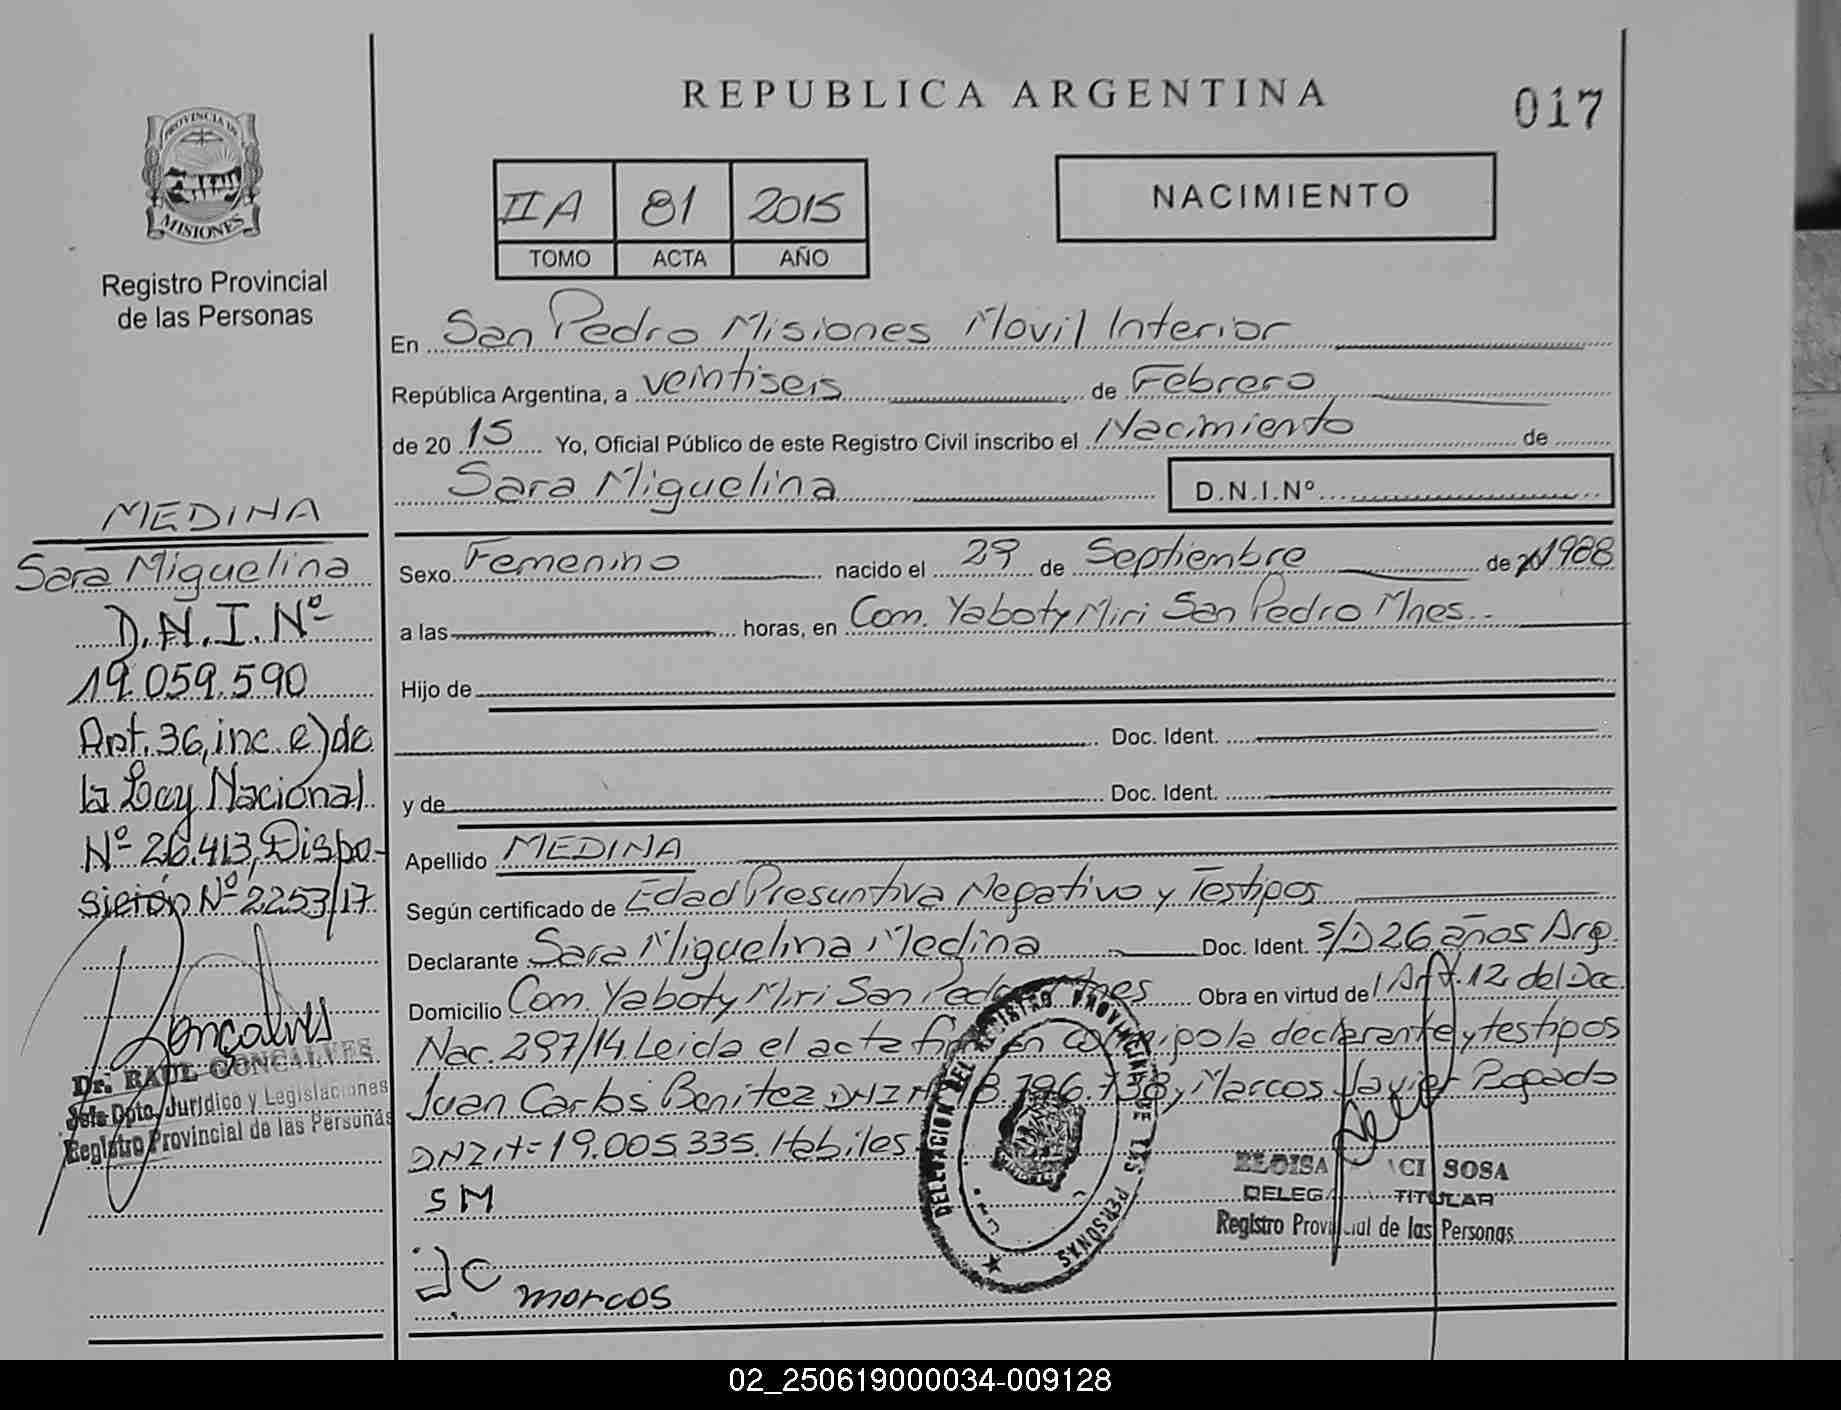 REPUBLICA ARGENTINA
017
PROVINCIA DE
MISIONES
Registro Provincial
de las Personas
II A 81 2015
TOMO ACTA AÑO
NACIMIENTO
En San Pedro Misiones Movil Interior
República Argentina, a veintiseis de Febrero
de 20 15 Yo, Oficial Público de este Registro Civil inscribo el Nacimiento de
Sara Miguelina D.N.I.Nº
Sexo Femenino nacido el 29 de Septiembre de 1988
a las horas, en Com. Yaboty Miri San Pedro Mnes.
Hijo de
Doc. Ident.
y de Doc. Ident.
Apellido MEDINA
Según certificado de Edad Presuntiva Negativo y Testigos
Declarante Sara Miguelina Medina Doc. Ident. S/D 26 años Arg.
Domicilio Com. Yaboty Miri San Pedro Mnes Obra en virtud del Art. 12 del Dec.
Nac. 297/14. Leida el acta la declarante y testigos
Juan Carlos Benitez DNI Nº 18.796.738 y Marcos Javier
DNI Nº 19.005.335. Habiles
S M
J C
marcos
DELEGACION DEL REGISTRO PROVINCIAL DE LAS PERSONAS
ELOISA SOSA
DELEG TITULAR
Registro Provincial de las Personas
MEDINA
Sara Miguelina
D.N.I.Nº
19.059.590
Art. 36, inc. e) de
la Ley Nacional
Nº 26.413, Dispo-
sición Nº 2253/17
Gonçalves
Dr. RAUL GONCALVES
Jefe Dpto. Jurídico y Legislaciones
Registro Provincial de las Personas
02_250619000034-009128